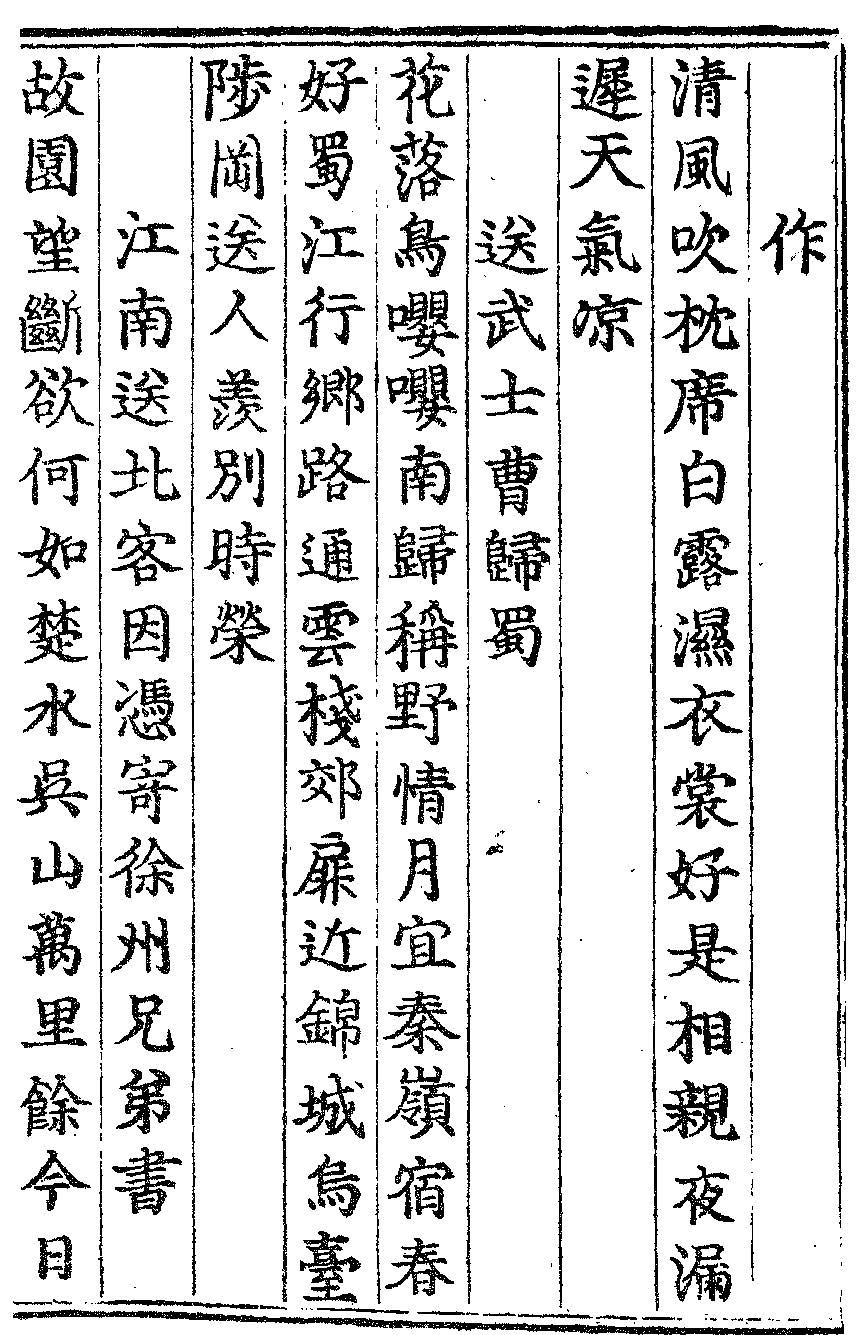 作
清風吹枕席白露濕衣裳好是相親夜漏
遲天氣凉
送武士曹歸蜀
花落鳥嚶嚶南歸稱野情月宜秦嶺宿春
好蜀江行鄉路通雲棧郊扉近錦城烏臺
陟岡送人羨別時榮
江南送北客因憑寄徐州兄弟書
故園望斷欲何如楚水吳山萬里餘今日